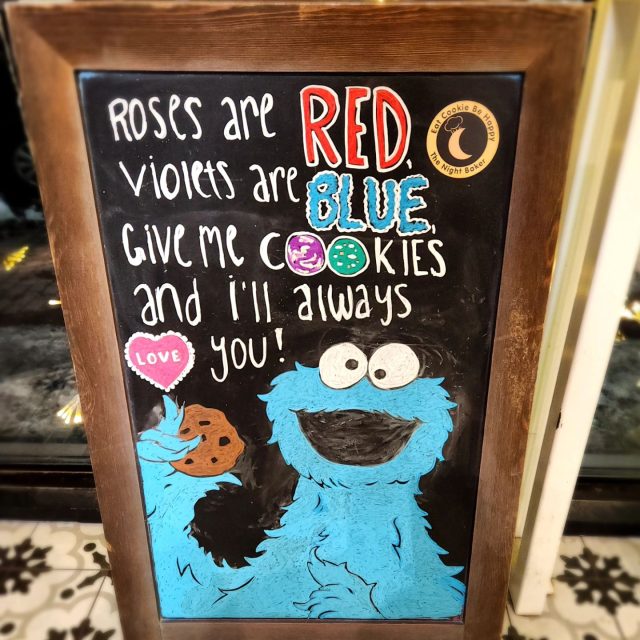 Roses are RED,
Violets are BLUE,
Give me COOKIES
and i'll always
LOVE you!
Eat Cookie Be Happy
The Night Baker